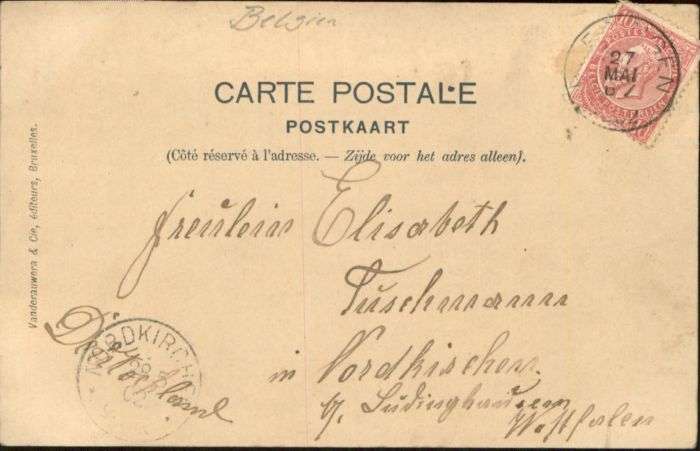 Belgien
27
MAI
CARTE POSTALE
POSTKAART
(Côté réservé à l'adresse. — Zijde voor het adres alleen).
Vanderauwera & Cie, éditeurs, Bruxelles.
Fräulein Elisabeth
Tüschmann
in Nordkirchen
b/ Lüdinghausen
Westfalen
Deutschland
NORDKIRCH